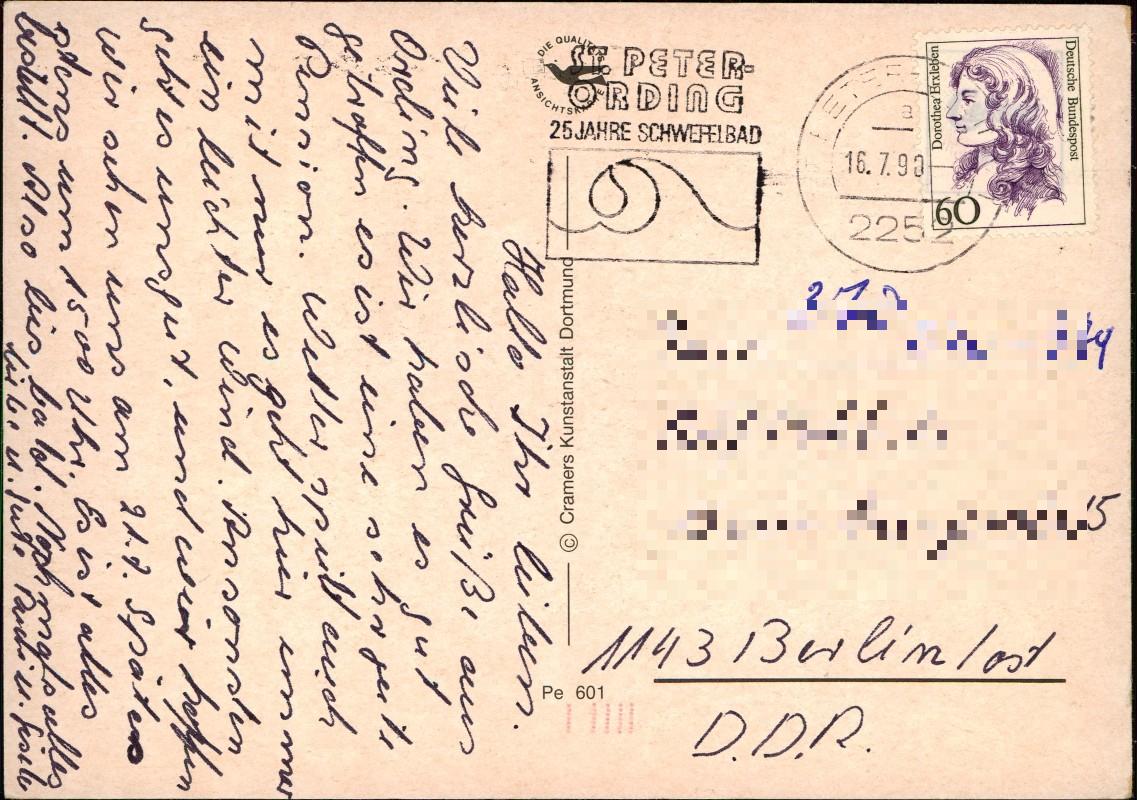 Hallo Ihr lieben.
Viele herzliche Grüße aus
Ording. Wir haben es gut
getroffen es ist eine sehr gute
Pension. Wetter spielt auch
mit nur es geht hier immer
ein leichter Wind. Ansonsten
geht es uns gut, und wir hoffen
wir sehen uns am 21.7. Späte
stens um 1500 Uhr. Es ist alles
bestellt. Also bis bald. Nochmals alles
liebe u. gute
DIE QUALITÄTS
ANSICHTSKARTE
ST. PETER-
ORDING
25 JAHRE SCHWEFELBAD
a
16.7.90
2252
Dorothea Erxleben
Deutsche Bundespost
60
© Cramers Kunstanstalt Dortmund
Pe 601
15
1143 Berlin/ost
D.D.R.